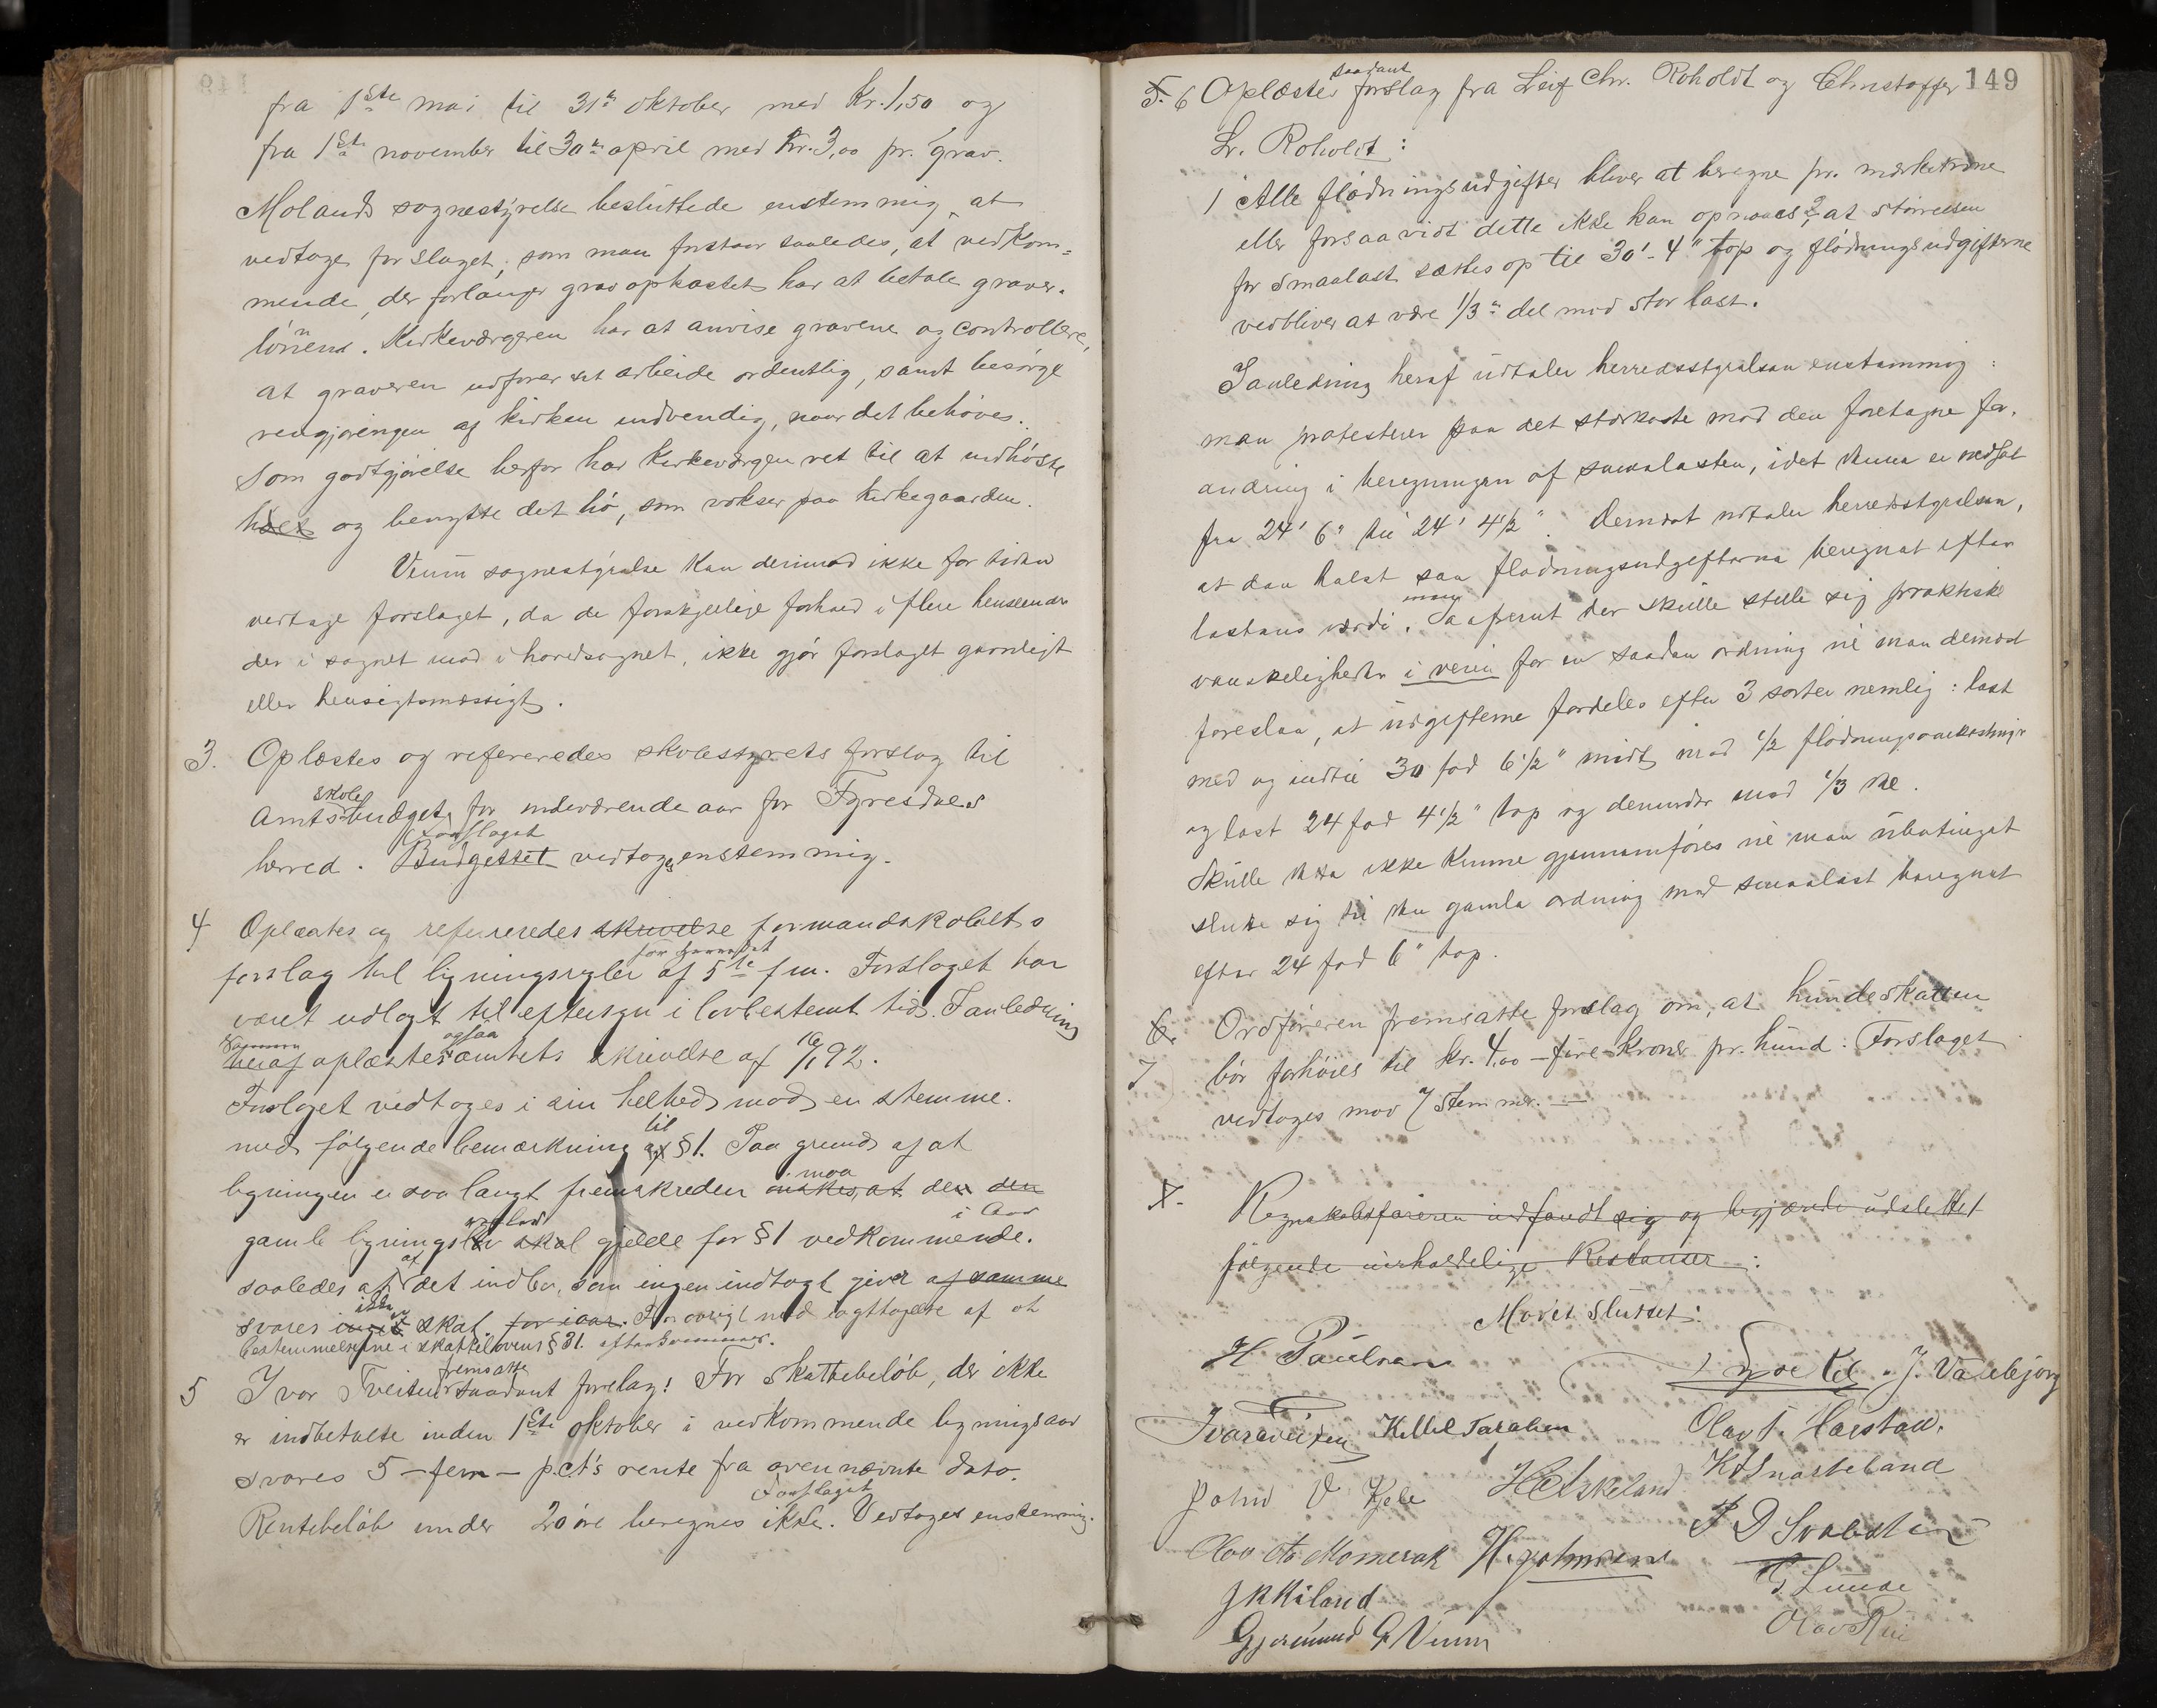 fra 1ste mai til 31te oktober med Kr. 1,50 og
fra 1ste november til 30te april med Kr. 3,00 pr. grav.
Molands sognestyrelse besluttede enstemmig, at
vedtage forslaget, som man forstaar saaledes, at vedkom=
mende, der forlanger grav opkastet har at betale graver=
lönnen. Kirkeværgeren har at anvise gravene og controllere,
at graveren udförer sit arbeide ordentlig, samt besörge
rengjöringen af kirken indvendig, naar det behöves.
Som godtgjörelse herfor har Kirkeværgen ret til at indhöste
og benytte det hö, som vokser paa Kirkegaarden.
Veum sognestyrelse kan derimod ikke for tiden
vedtage forslaget, da de forskjellige forhold i flere henseender
der i sognet mod i hovedsognet, ikke gjör forslaget gavnligt
eller hensigtsmæssigt.
3. Oplæstes og refereredes skolestyrets forslag til
Amtsskolebudget for indeværende aar for Fyresdals
herred. Budgettet Forslaget vedtoges enstemmig.
4 Oplæstes og refereredes skrivelse formandskabets
forslag til ligningsregler for herredet af 5te f.m. Forslaget har
været udlagt til eftersyn i lovbestemt tid. I anledning
heraf oplæstes ogsaa amtets skrivelse af
Forslaget vedtoges i sin helhed mod en stemme.
med fölgende bemærkning af til § 1. Paa grund af at
ligningen er saa langt fremskreden önskes, at maa den den
gamle ligningslov skal gjelde for § 1 vedkommende. i Aar
saaledes at af det indbo, som ingen indtægt giver af samme
svares ikke skat. for iaar. For övrigt med iagttagelse af at
bestemmelserne i skattelovens § 31. efterkommes.
5 Ivar Tveiten fremsatte saadant forslag! For Skattebelöb, der ikke
er indbetalte inden 1ste oktober i vedkommende ligningsaar
svares 5 - fem - p.ct's rente fra ovennævnte dato.
Rentebelöb under 20 öre beregnes ikke. Forslaget Vedtoges enstemmig.
149
5. 6 Oplæstes saadant forslag fra Leif Chr. Roholdt og Christoffer
Lr. Roholdt:
1 Alle flödningsudgifter bliver at beregne pr. mærketröne
eller forsaavidt dette ikke kan opnaaes 2, at störrelsen
for smaalast sættes op til 30' - 4" top og flödningsudgifterne
vedbliver at være 1/3 del mod stor last.
I anledning heraf udtaler herredsstyrelsen enstemmig:
man protesterer paa det stærkeste mod den foretagne for=
andring i beregningen af smaalasten, idet denne er nedsat
fra 24' 6" til 24' 4½". Dernæst udtaler herredsstyrelsen,
at den helst saa flödningsudgifterne beregnet efter
lastens værdi. Saafremt der skulle stille sig mange praktiske
vanskeligheder i veien for en saadan ordning vil man dernæst
foreslaa, at udgifterne fordeles efter 3 sorter nemlig: last
med og indtil 30 fod 6½" midt mod ½ flödningsomkostninger
og last 24 fod 4½" top og derunder mod 1/3 del.
Skulle dette ikke kunne gjennemföres vil man ubetinget
slutte sig til den gamle ordning med smaalast beregnet
efter 24 fod 6" top.
6. Ordföreren fremsatte forslag om, at hundeskatten
7 bör forhöies til kr. 4,00 – fire – Kroner pr. hund. Forslaget
vedtoges mod 7 stemmer. —
X. Regnskabsföreren indfandt sig og begjærede udslettet
fölgende uerholdelige Restancer:
Mödet Sluttet:
H Paulsen
J. Vaslebjorg
Ivar Tveiten Kittel Taraldsen Olav T. Haistad.
John V Kjele H. Eskeland K A Snarteland
Olav Momrak H. Johnsen
J K Kiland T. Lunde
Gjermund G Veum Olav Rui